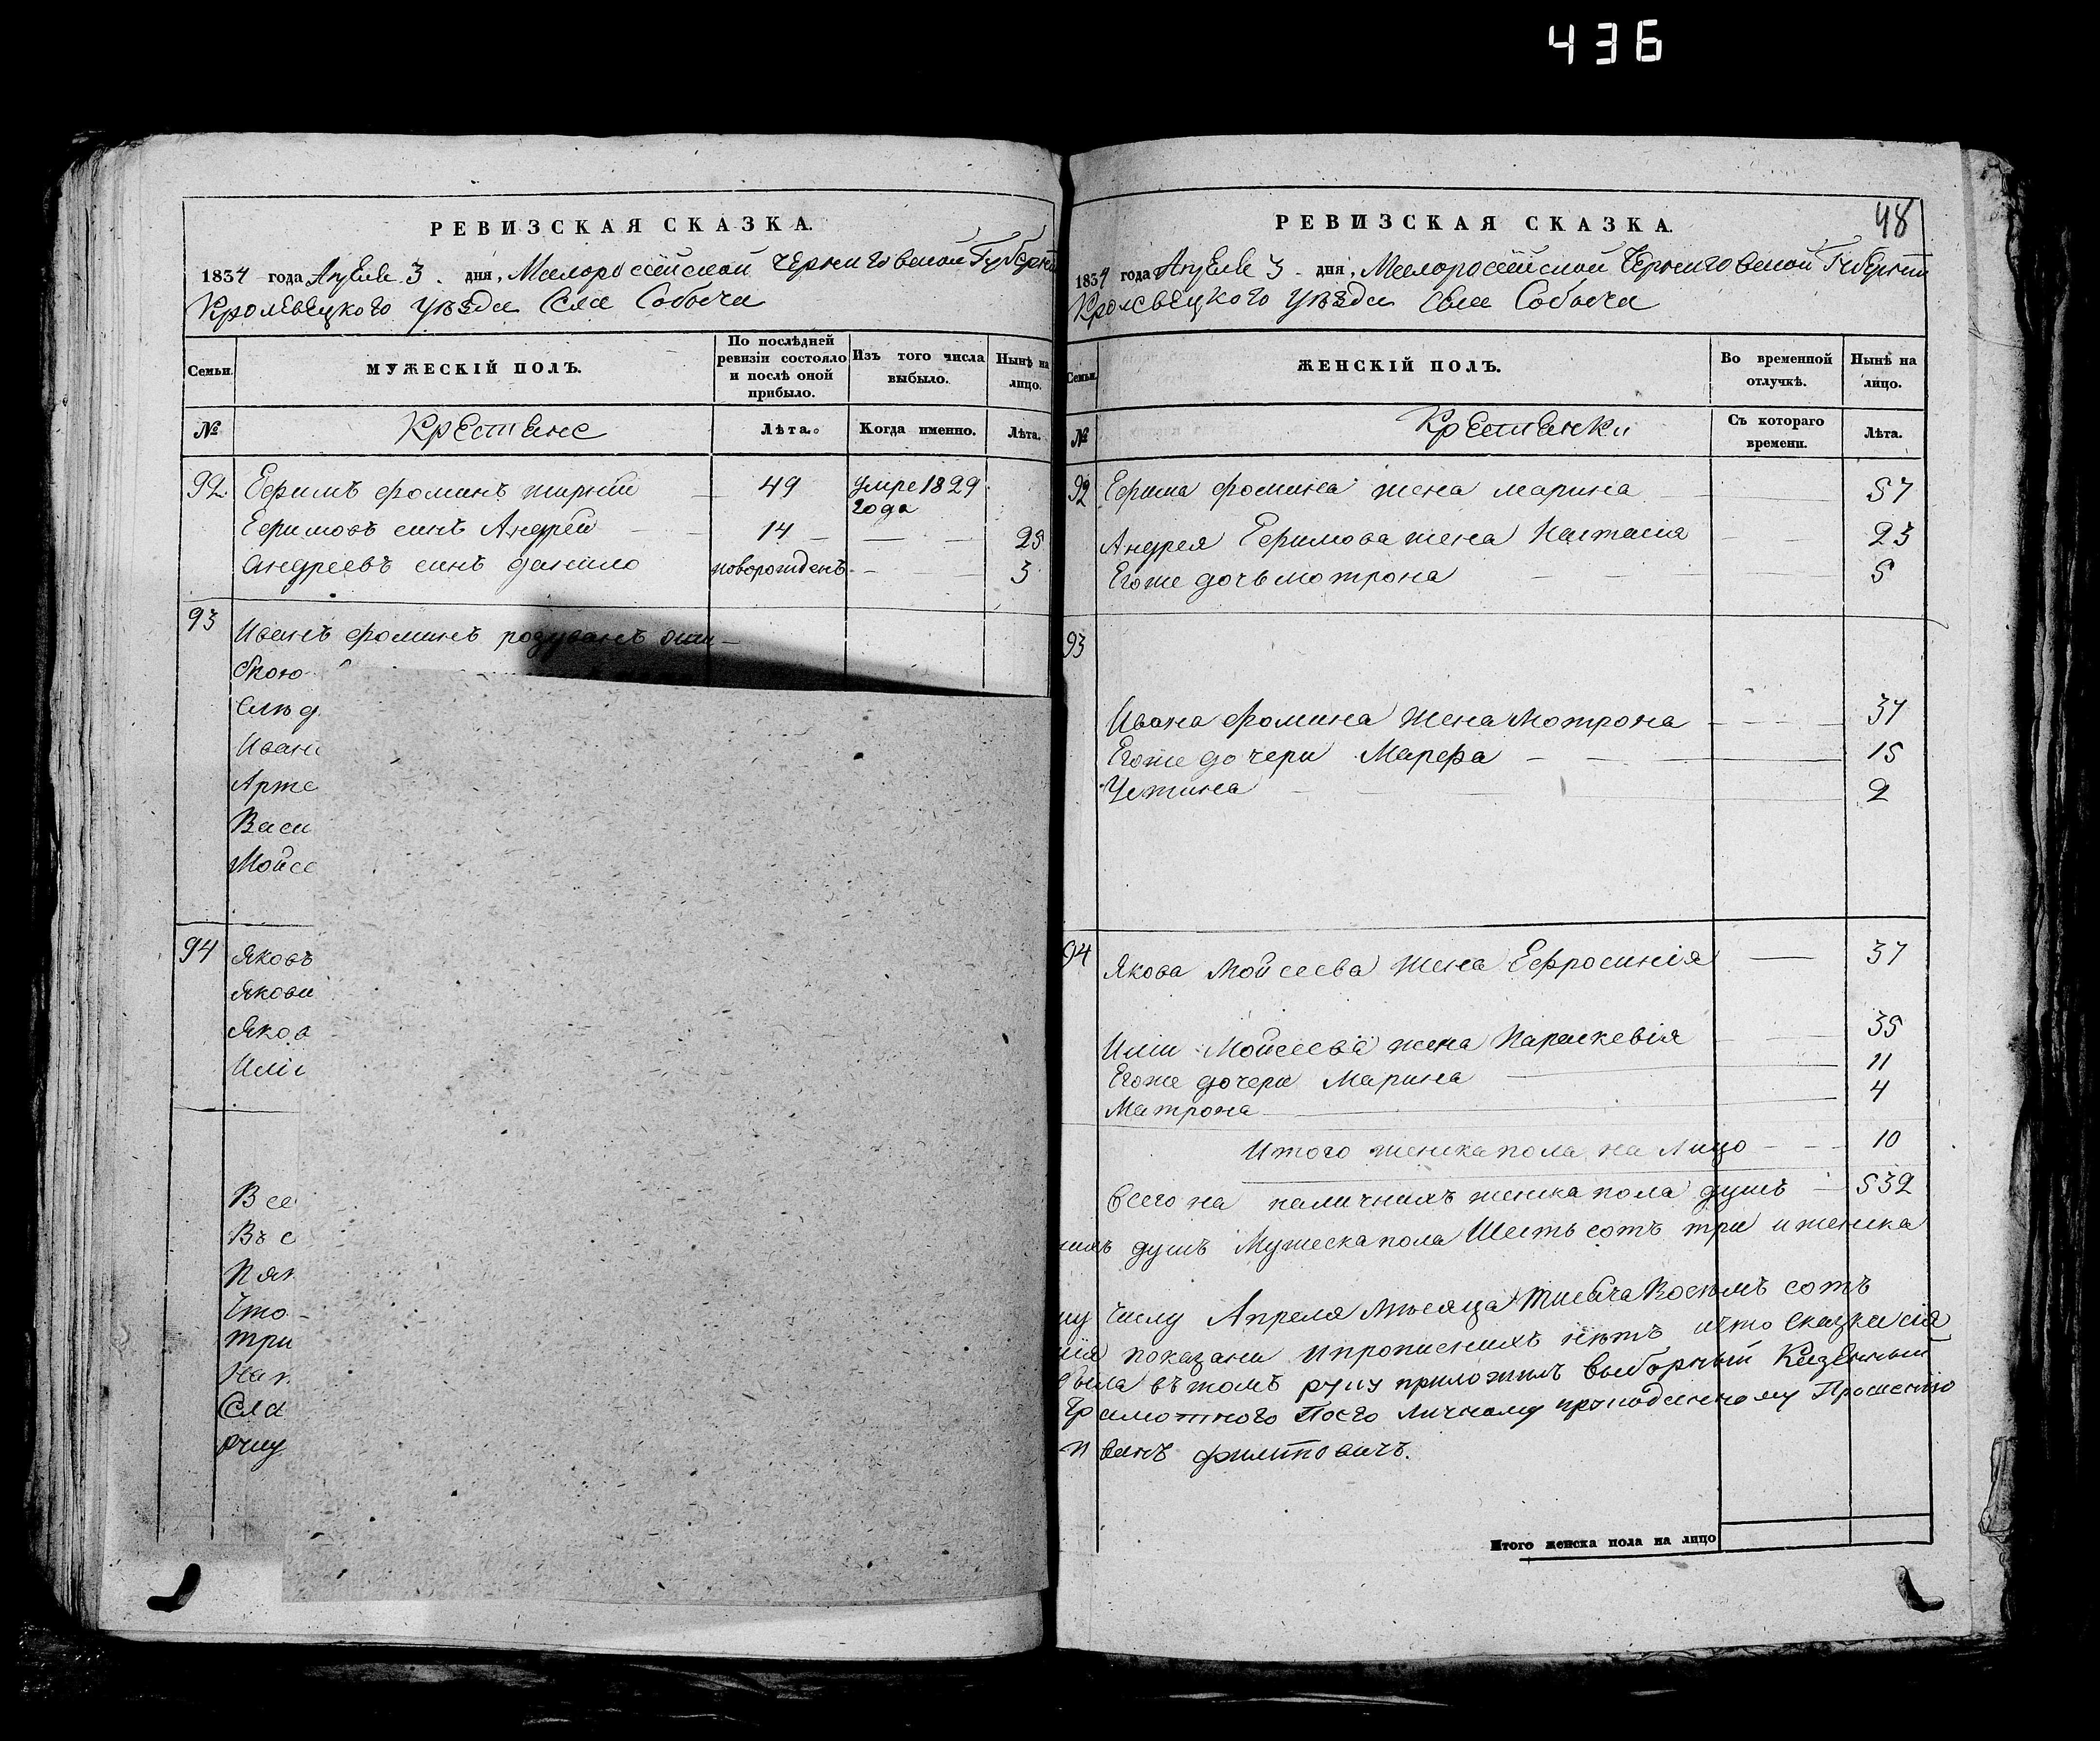 436
РЕВИЗСКАЯ СКАЗКА.
1834 года Апреля 3. дня, Малороссійской Черниговской Губерніи
Кролевецкого уѣзда Села Собыча
Семьи.
МУЖЕСКІЙ ПОЛЪ.
По послѣдней ревизіи состояло и послѣ оной прибыло.
Изъ того числа выбыло.
Нынѣ на лицо.
№
Крестяне
Лѣта.
Когда именно.
Лѣта.
92. Ефимъ Фоминъ 49 умре 1829 года
Ефимовъ синъ Андрей 14 25
Андреевъ синъ Данило новорожденъ 3
93 Иванъ Фоминъ
Слѣд
Иван
Арте
Васи
Мойсе
94 Яковъ
Якови
Яков
Иліи
Все
Въ с
Пят
Что
три
На
Села
руку
48
РЕВИЗСКАЯ СКАЗКА.
1834 года Апреля 3 дня, Малороссійской Черниговской Губерніи
Кролевецкого уѣзда Села Собыча
Семьи.
ЖЕНСКІЙ ПОЛЪ.
Во временной отлучкѣ.
Нынѣ на лицо.
№
Крестянки
Съ котораго времени.
Лѣта.
92 Ефима Фомина жена Марина 57
Андрея Ефимова жена Настасія 23
Егоже дочь Мотрона 5
93
Ивана Фомина жена Мотрона 37
Егоже дочери Марфа 15
Устина 2
94 Якова Мойсеева жена Ефросинія 37
Иліи Мойсеева жена Параскевія 35
Егоже дочери Марина 11
Матрона 4
Итого женска пола на лицо 10
Всего на наличнихъ женска пола душъ 532
душъ Мужеска пола Шесть сотъ три и женска
числу Апреля Мѣсяца Тисяча Восемъ сотъ
показани и прописнихъ нѣтъ и что Сказка сія
въ томъ руку приложилъ Выборный Казенный
Грамотного По его Личному Прошенію
Иванъ Филиповичъ.
Итого женска пола на лицо